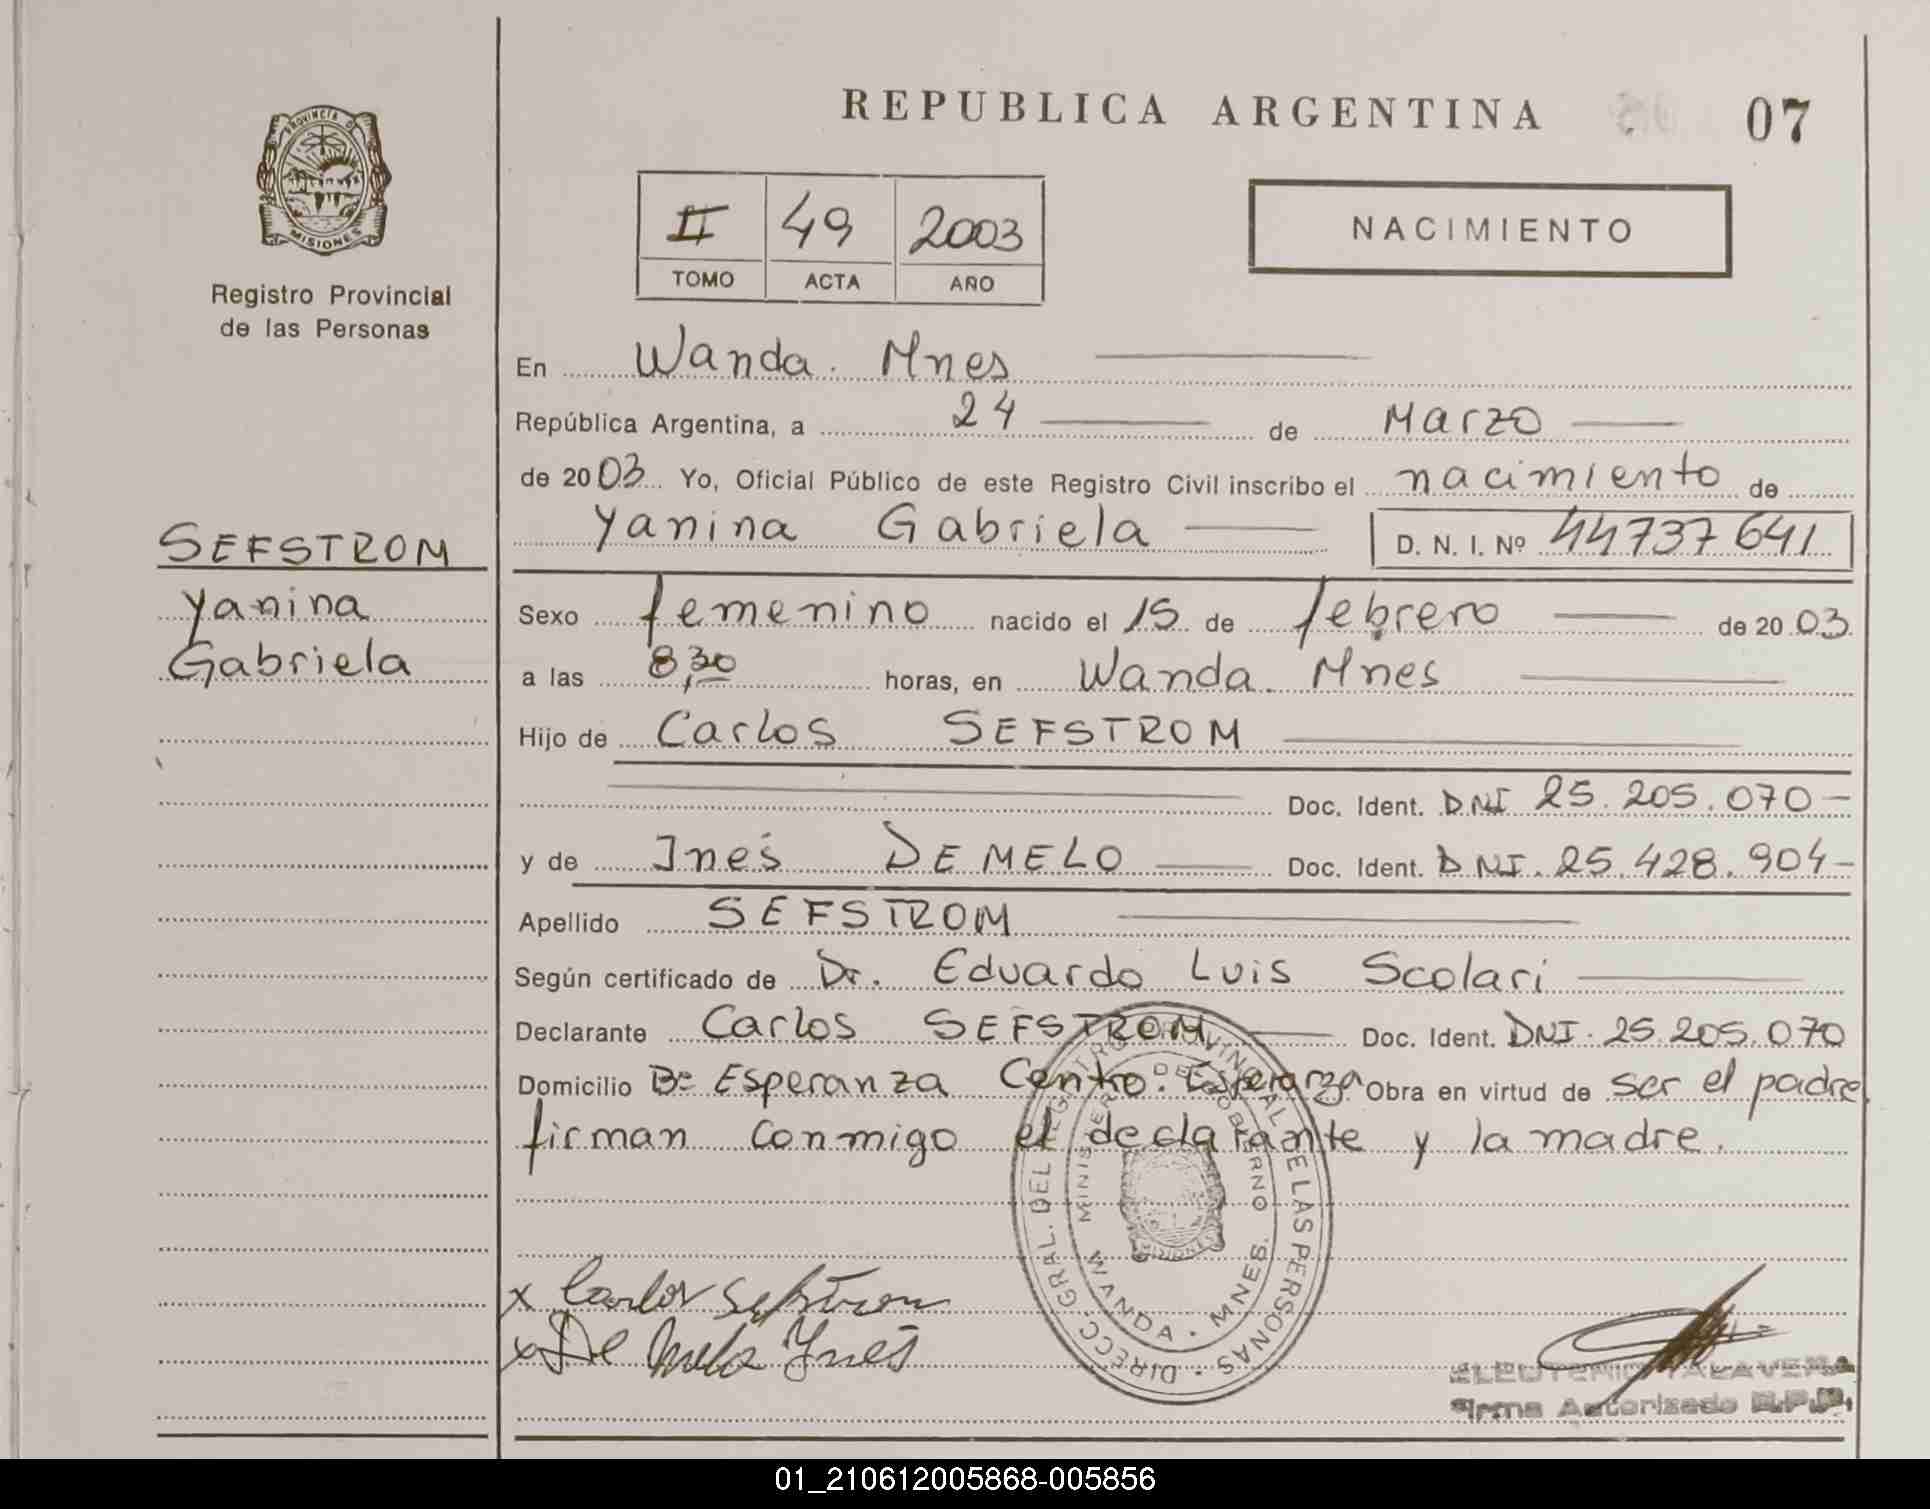 REPUBLICA ARGENTINA 07
PROVINCIA DE
MISIONES
Registro Provincial
de las Personas
II 49 2003
TOMO ACTA AÑO
NACIMIENTO
En Wanda. Mnes
República Argentina, a 24 de Marzo
de 2003 Yo, Oficial Público de este Registro Civil inscribo el nacimiento de
Yanina Gabriela D. N. I. Nº 44737641
SEFSTROM
Yanina
Gabriela
Sexo femenino nacido el 15 de febrero de 2003
a las 8,30 horas, en Wanda. Mnes
Hijo de Carlos SEFSTROM
Doc. Ident. DNI 25.205.070-
y de Inés DEMELO Doc. Ident. DNI. 25.428.904-
Apellido SEFSTROM
Según certificado de Dr. Eduardo Luis Scolari
Declarante Carlos SEFSTROM Doc. Ident. DNI. 25.205.070
Domicilio Bº Esperanza Centro. Esperanza Obra en virtud de ser el padre,
firman conmigo el declarante y la madre.
DIRECC. GRAL. DEL REGISTRO PROVINCIAL DE LAS PERSONAS
MINISTERIO DE GOBIERNO
WANDA · MNES.
x Carlos Sefstrom
x De Melo Ynés
ELEUTERIO TALAVERA
Firma Autorizado R.P.P.
01_210612005868-005856